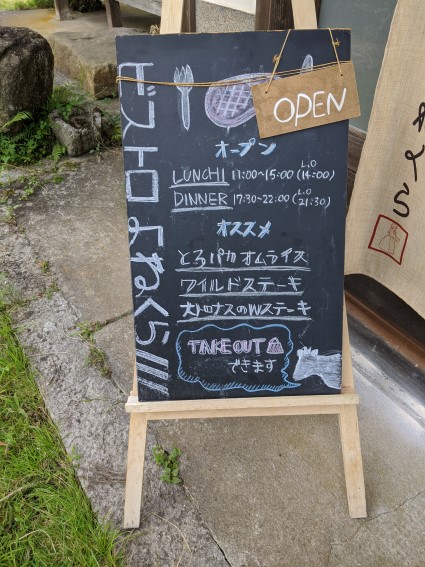 ビストロ よねくら!!!
OPEN
オープン
LUNCH 11:00~15:00 (L.O 14:00)
DINNER 17:30~22:00 (L.O 21:30)
オススメ
とろパカ オムライス
ワイルドステーキ
大トロナスのWステーキ
TAKE OUT
できます
ねくら